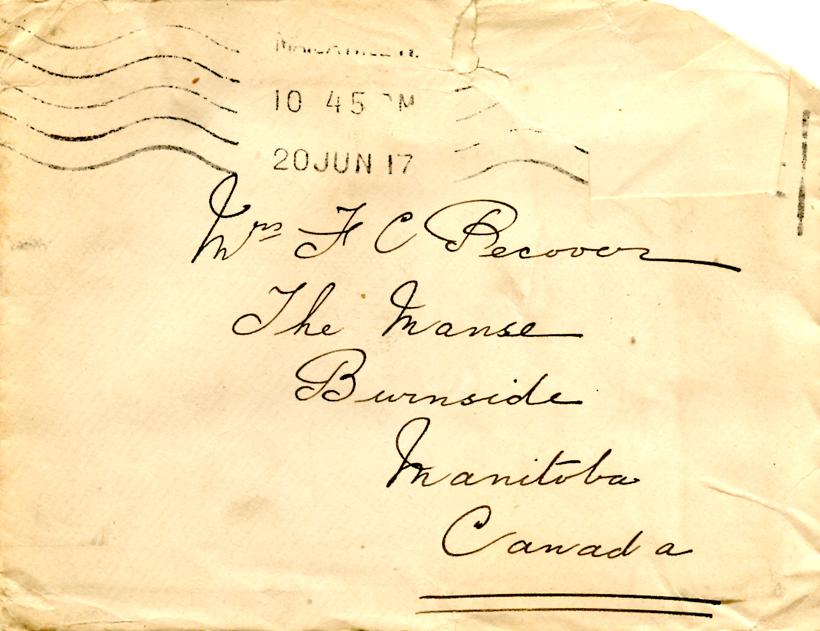 10 45 PM
20 JUN 17
Mrs F C Pecover
The Manse
Burnside
Manitoba
Canada